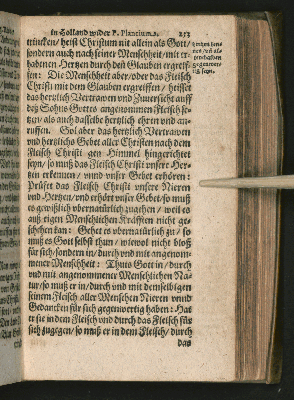 in Holland wider P. Plancium. 253
trincken/ heist Christum nit allein als Gott/
sondern auch nach seiner Menschheit/ mit er-
habenen Hertzen durch den Glauben ergreif-
fen: Die Menschheit aber/ oder das Fleisch
Christi mit dem Glauben ergreiffen/ heisset
das hertzlich Vertrawen und Zuversicht auff
deß Sohns Gottes angenommen Fleisch se-
tzen/ als auch dasselbe hertzlich ehren und an-
ruffen. Sol aber das hertzlich Vertrawen
und hertzlichs Gebet aller Christen nach dem
Fleisch Christi gen Himmel hingerichtet
seyn/ so muß das Fleisch Christi unsere Her-
tzen erkennen/ unnd unser Gebet erhören:
Prüfet das Fleisch Christi unsere Nieren
und Hertzen/ und erhöret unser Gebet/ so muß
es gewißlich vbernatürlich zugehen/ weil es
auß eigen Menschlichen Kräfften nicht ge-
schehen kan: Gehet es vbernatürlich zu/ so
muß es Gott selbst thun/ wiewol nicht bloß
für sich/ sondern in/ durch und mit angenom-
mener Menschheit: Thuts Gott in/ durch
und mit angenommener Menschlichen Na-
tur/ so muß er in/ durch und mit demselbigen
seinem Fleisch aller Menschen Nieren vnnd
Gedancken für sich gegenwertig haben: Hat
er sie in dem Fleisch und durch das Fleisch für
sich zugegen/ so muß er in dem Fleisch/ durch
das